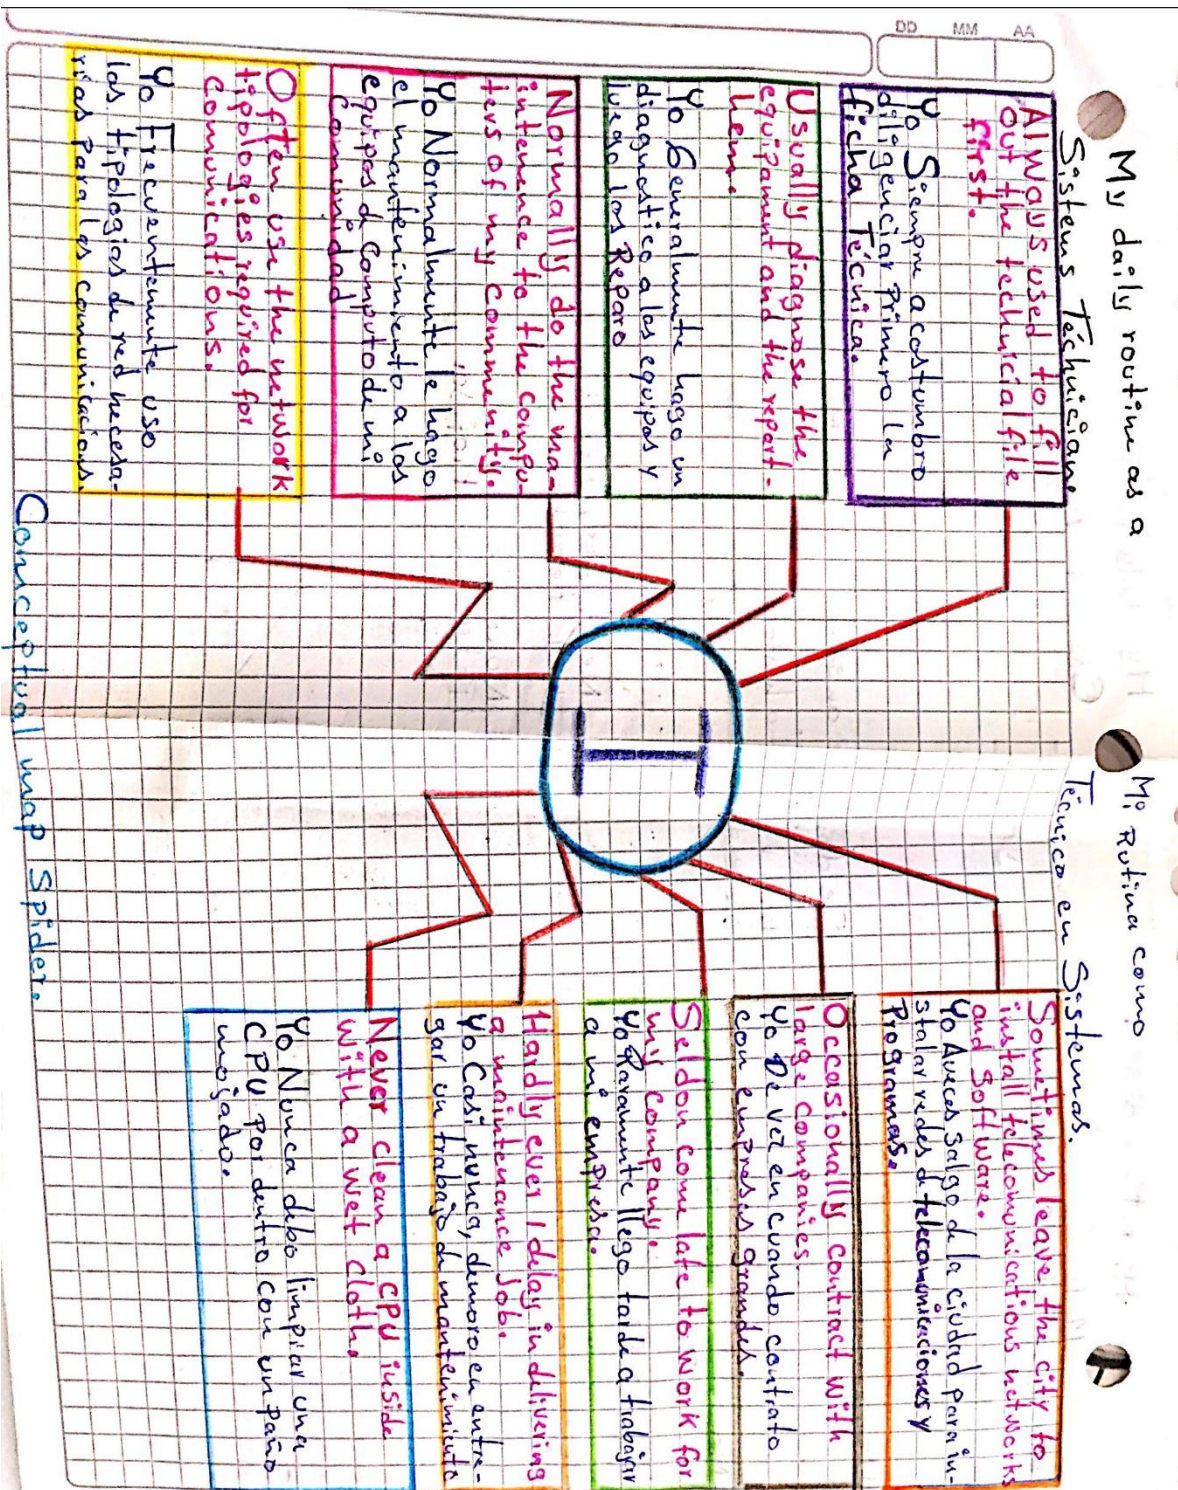 DD MM AA
My daily routine as a
Sistems Téchnician.
Mi Rutina como
Técnico en Sistemas.
Always used to fill
out the technicial file
first.
Yo Siempre acostumbro
diligenciar primero la
ficha Técnica.
Usually diagnose the
equipament and the repart-
hem.
Yo Generalmente hago un
diagnostico a los equipos y
luego los Reparo
Normally do the ma-
intenence to the compu-
tevs of my community.
Yo Normalmente le hago
el mantenimiento a los
equipos de Computo de mi
Comunidad
Often use the network
tipologies required for
Comunications.
Yo Frecuentemente uso
las tipologias de red necesa-
rias para las comunicacions.
I
Sometimes leave the city to
install telecomunications networks
and Software.
Yo Aveces Salgo de la ciudad para in-
stalar redes de telecomunicaciones y
Programas.
Occasionally contract with
large companies.
Yo De vez en cuando contrato
con empresas grandes.
Seldon come late to work for
my company.
Yo Raramente llego tarde a trabajar
a mi empresa.
Hardly ever I delay in delivering
a maintenance Job.
Yo Casi nunca, demoro en entre-
gar un trabajo de mantenimiento
Never clean a CPU inside
with a wet cloth.
Yo Nunca debo limpiar una
CPU por dentro con un paño
mojado.
Conceptual map Spider.